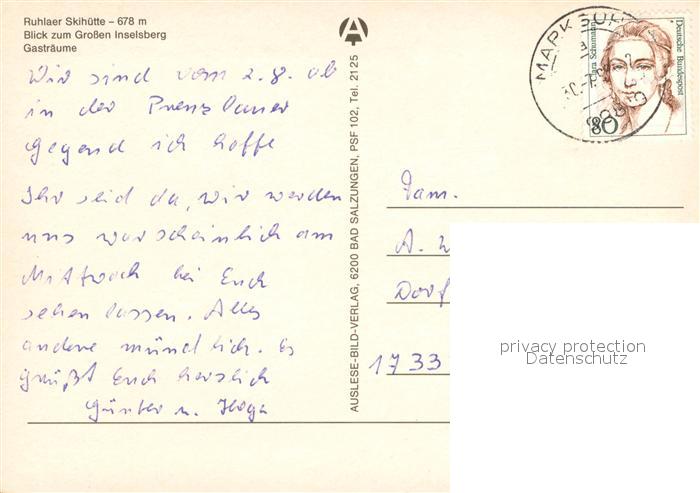 Ruhlaer Skihütte – 678 m
Blick zum Großen Inselsberg
Gasträume
Wir sind vom 2.8. ab
in der Prenzlauer
Gegend ich hoffe
Ihr seid da, wir werden
uns warscheinlich am
Mittwoch bei Euch
sehen lassen. Alles
andere mündlich. Es
grüßt Euch herzlich
Günter u. Helga
AUSLESE-BILD-VERLAG, 6200 BAD SALZUNGEN, PSF 102, Tel. 2125
MARKSUHL
Deutsche Bundespost
Clara Schumann
80
Fam.
A.
Dorf
1733
privacy protection
Datenschutz